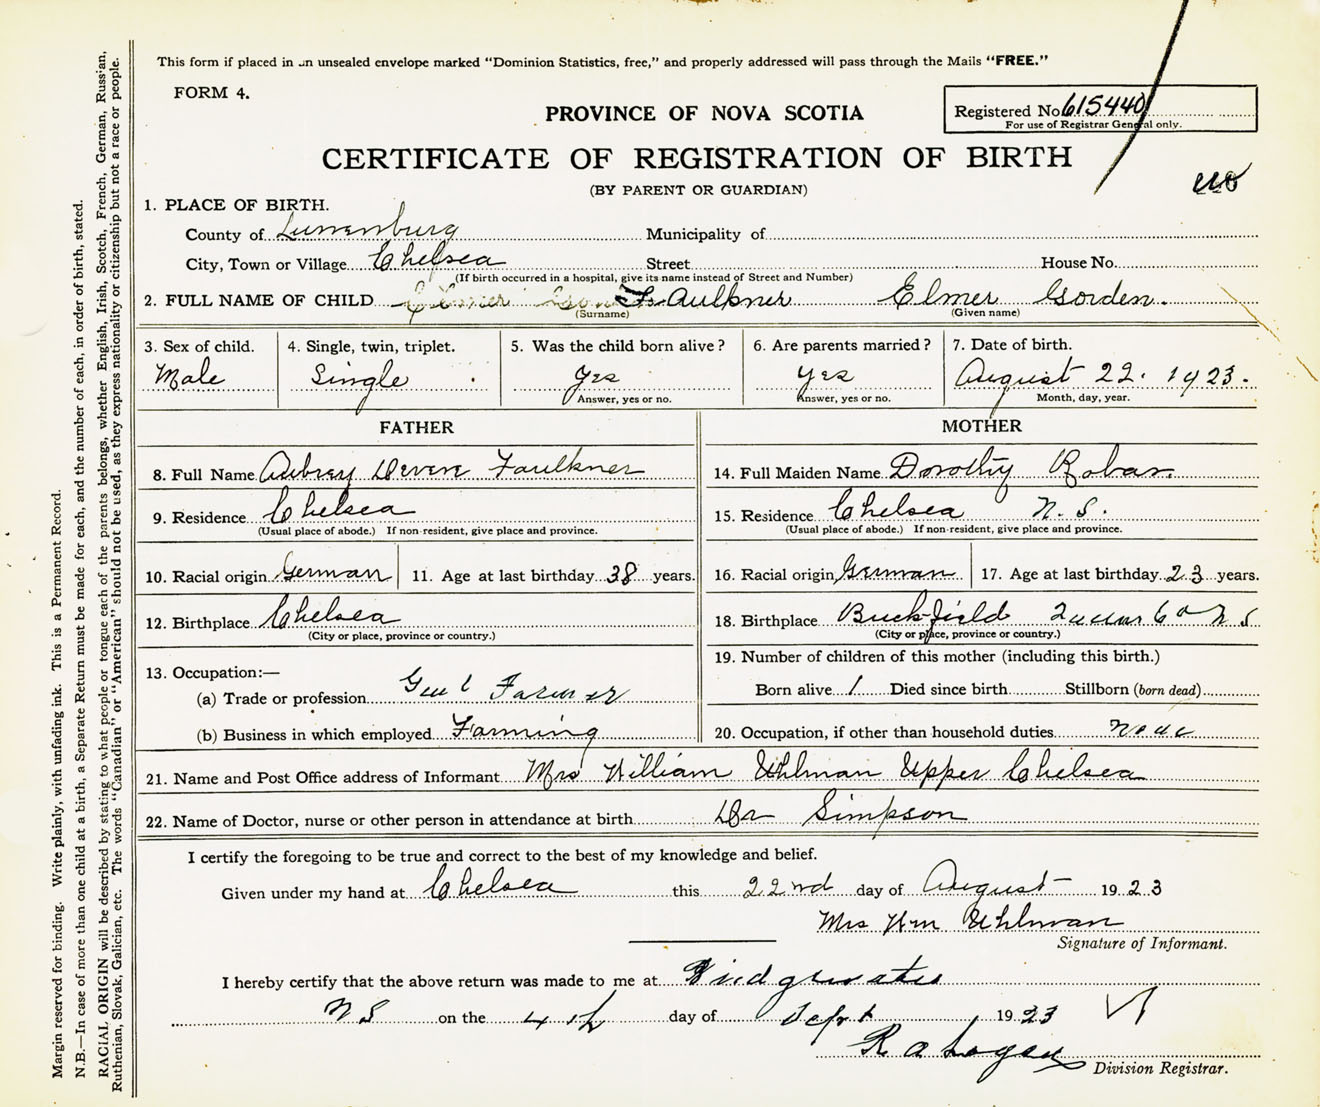 This form if placed in an unsealed envelope marked "Dominion Statistics, free," and properly addressed will pass through the Mails "FREE."
FORM 4.
PROVINCE OF NOVA SCOTIA
Registered No 615440
For use of Registrar General only.
CERTIFICATE OF REGISTRATION OF BIRTH
(BY PARENT OR GUARDIAN)
1. PLACE OF BIRTH.
County of Lunenburg Municipality of
City, Town or Village Chelsea Street House No.
(If birth occurred in a hospital, give its name instead of Street and Number)
2. FULL NAME OF CHILD Faulkner Elmer Gorden.
(Surname) (Given name)
3. Sex of child. 4. Single, twin, triplet. 5. Was the child born alive? 6. Are parents married? 7. Date of birth.
Male Single Yes Yes August 22. 1923.
Answer, yes or no. Answer, yes or no. Month, day, year.
FATHER
8. Full Name Aubrey Faulkner
9. Residence Chelsea
(Usual place of abode.) If non-resident, give place and province.
10. Racial origin German 11. Age at last birthday 38 years.
12. Birthplace Chelsea
(City or place, province or country.)
13. Occupation:—
(a) Trade or profession Gen'l Farmer
(b) Business in which employed Farming
MOTHER
14. Full Maiden Name Dorothy Robar.
15. Residence Chelsea N. S.
(Usual place of abode.) If non-resident, give place and province.
16. Racial origin German 17. Age at last birthday 23 years.
18. Birthplace Buckfield Queens Co N S
(City or place, province or country.)
19. Number of children of this mother (including this birth.)
Born alive 1 Died since birth Stillborn (born dead)
20. Occupation, if other than household duties None
21. Name and Post Office address of Informant Mrs William Uhlman Upper Chelsea
22. Name of Doctor, nurse or other person in attendance at birth Dr Simpson
I certify the foregoing to be true and correct to the best of my knowledge and belief.
Given under my hand at Chelsea this 22nd day of August 1923
Mrs Wm Uhlman
Signature of Informant.
I hereby certify that the above return was made to me at Bridgewater
N S on the 4th day of Sept 1923
R a Logan
Division Registrar.
Margin reserved for binding. Write plainly, with unfading ink. This is a Permanent Record.
N.B.—In case of more than one child at a birth, a Separate Return must be made for each, and the number of each, in order of birth, stated.
RACIAL ORIGIN will be described by stating to what people or tongue each of the parents belongs, whether English, Irish, Scotch, French, German, Russian,
Ruthenian, Slovak, Galician, etc. The words "Canadian" or "American" should not be used, as they express nationality or citizenship but not a race or people.